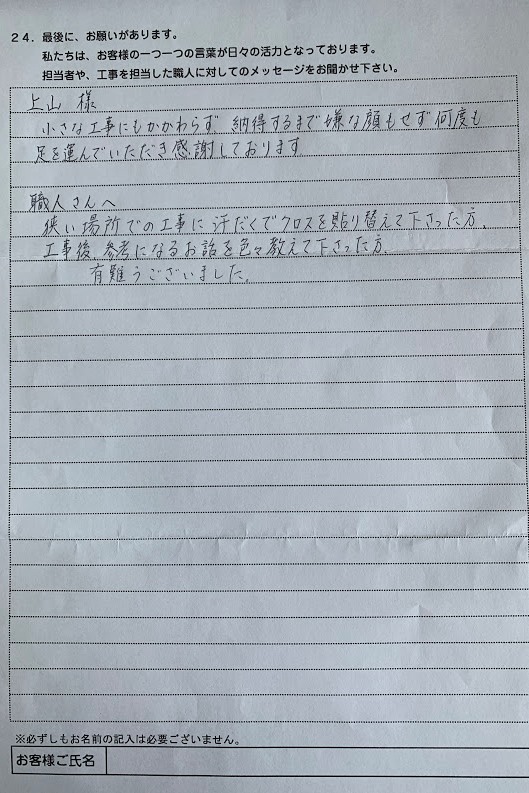 24. 最後に、お願いがあります。
私たちは、お客様の一つ一つの言葉が日々の活力となっております。
担当者や、工事を担当した職人に対してのメッセージをお聞かせ下さい。
上山 様
小さな工事にもかかわらず 納得するまで嫌な顔もせず何度も
足を運んでいただき感謝しております
職人さんへ
狭い場所での工事に汗だくでクロスを貼り替えて下さった方、
工事後、参考になるお話を色々教えて下さった方、
有難うございました。
※必ずしもお名前の記入は必要ございません。
お客様ご氏名